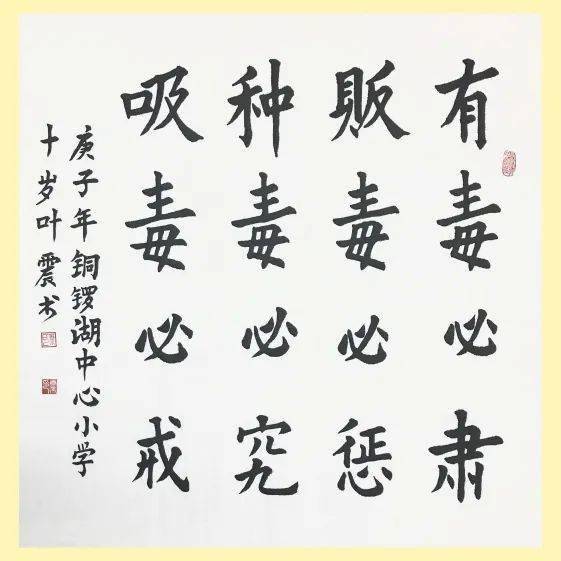 有毒必肃
販毒必惩
种毒必究
吸毒必戒
庚子年铜锣湖中心小学
十岁叶震术